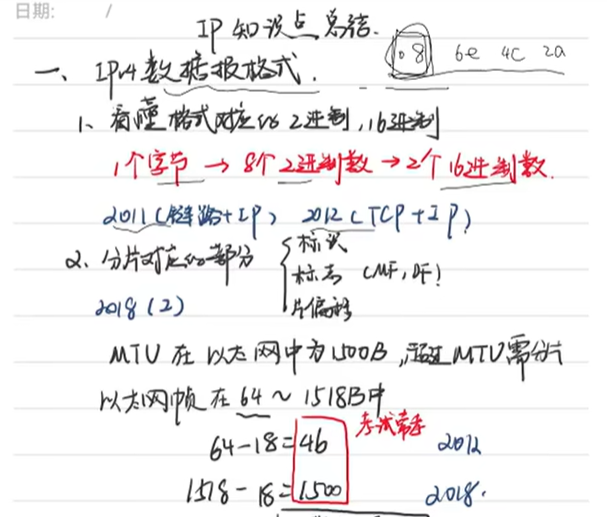 日期: /
IP知识点总结.
08 6e 4c 2a
一、IPv4数据报格式.
1、看懂格式对应的2进制,16进制
1个字节→8个2进制数→2个16进制数.
2011(链路+IP) 2012(TCP+IP)
2、分片对应的部分
标识
标志(MF,DF)
片偏移
2018(2)
MTU在以太网中为1500B,超过MTU需分片
以太网帧在64~1518B中
考试常考
64-18=46 2012
1518-18=1500 2018.